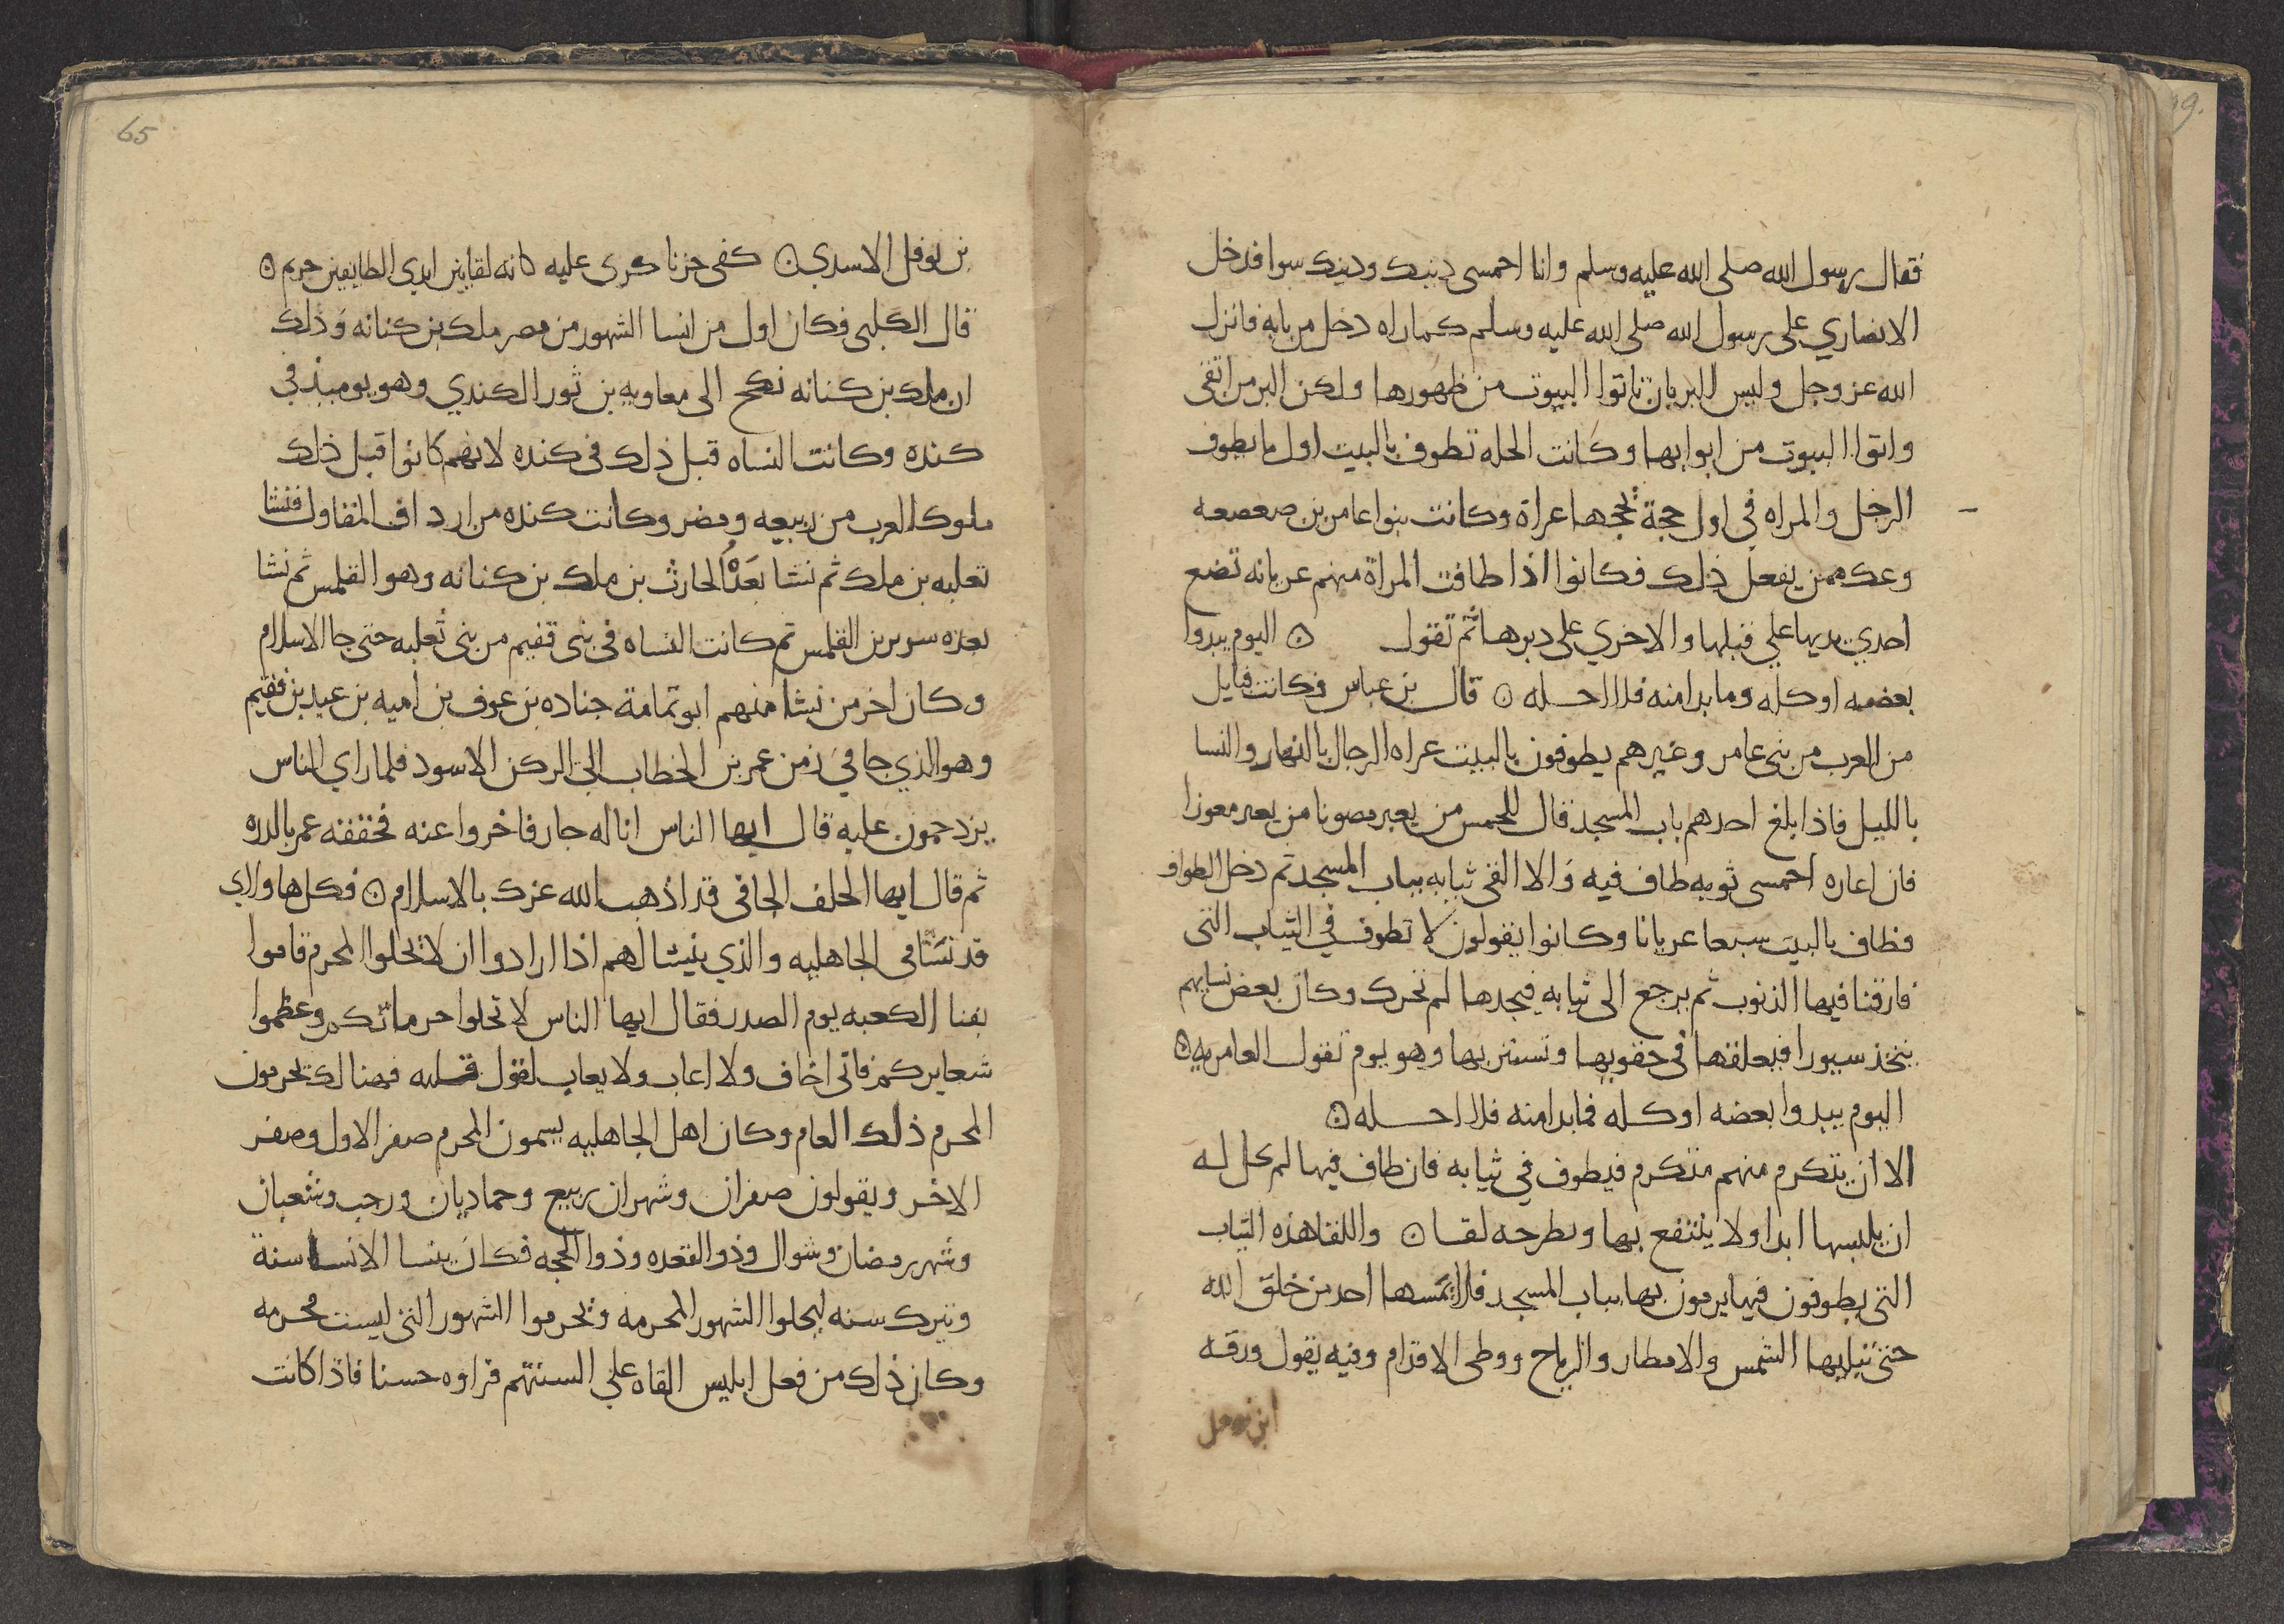 فقال رسول الله صلى الله عليه وسلم وانا احمسى دينك ودينك سوا فدخل
الانصاري على رسول الله صلى الله عليه وسلم كما راه دخل من بابه فانزل
الله عز وجل وليس البر بان تاتوا البيوت من ظهورها ولكن البر من اتقى
واتوا البيوت من ابوابها وكانت الحله تطوف بالبيت اول ما يطوف
الرجل والمراه في اول حجة يحجها عراة وكانت بنوا عامر بن صعصعه
وعك ممن يفعل ذلك فكانوا اذا طافت المراة منهم عريانه تضع
احدي يديها علي قبلها والاخري على دبرها ثم تقول ۞ اليوم يبدوا
بعضه او كله وما بدا منه فلا احله ۞ قال بن عباس فكانت قبايل
من العرب من بنى عامر وغيرهم يطوفون بالبيت عراه الرجال بالنهار والنسا
بالليل فاذا بلغ احدهم باب المسجد قال للحمس من يعير مصونا من يعير معوزا
فان اعاره احمسى ثوبه طاف فيه والا القى ثيابه بباب المسجد ثم دخل الطواف
فطاف بالبيت سبعا عريانا وكانوا يقولون لا نطوف في الثياب التى
قارفنا فيها الذنوب ثم يرجع الى ثيابه فيجدها لم تحرك وكان بعض نسايهم
يتخذ سيورا فيعلقها فى حقويها وتستتر بها وهو يوم تقول العامريه ۞
اليوم يبدوا بعضه او كله فما بدا منه فلا احله ۞
الا ان يتكرم منهم متكرم فيطوف في ثيابه فان طاف فيها لم يحل له
ان يلبسها ابدا ولا ينتفع بها ويطرحه لقا ۞ واللقا هذه الثياب
التى يطوفون فيها يرمون بها بباب المسجد فلا يمسها احد من خلق الله
حتى تبليها الشمس والامطار والرياح ووطى الاقدام وفيه يقول ورقه
ابن نوفل
65
بن نوفل الاسدي ۞ كفى حزنا كرى عليه كانه لقا بين ايدي الطايفين حريم ۞
قال الكلبى فكان اول من انسا الشهور من مضر ملك بن كنانه وذلك
ان ملك بن كنانه نكح الى معاويه بن ثور الكندي وهو يوميذ فى
كنده وكانت النساه قبل ذلك فى كنده لانهم كانوا قبل ذلك
ملوك العرب من ربيعه ومضر وكانت كنده من ارداف المقاول فنشا
ثعلبه بن ملك ثم نشا بعده الحارث بن ملك بن كنانه وهو القلمس ثم نشا
بعده سرير بن القلمس ثم كانت النساه فى بنى فقيم من بنى ثعلبه حتى جا الاسلام
وكان اخر من نشا منهم ابو ثمامة جناده بن عوف بن اميه بن عبد بن فقيم
وهو الذي جا في زمن عمر بن الخطاب الي الركن الاسود فلما راي الناس
يزدحمون عليه قال ايها الناس انا له جار فاخروا عنه فخفقه عمر بالدره
ثم قال ايها الجلف الجافى قد اذهب الله عزك بالاسلام ۞ فكل هاولاي
قد نشا فى الجاهليه والذي ينشا لهم اذا ارادوا ان لا يحلوا المحرم قاموا
بفنا الكعبه يوم الصدر فقال ايها الناس لا تحلوا حرماتكم وعظموا
شعايركم فانى اخاف ولا اعاب ولا يعاب لقول قلته فهنالك يحرمون
المحرم ذلك العام وكان اهل الجاهليه يسمون المحرم صفر الاول وصفر
الاخر ويقولون صفران وشهران ربيع وجماديان ورجب وشعبان
وشهر رمضان وشوال وذو القعده وذوا الحجه فكان ينسا الانسا سنة
ويترك سنه ليحلوا الشهور المحرمه ويحرموا الشهور التى ليست محرمه
وكان ذلك من فعل ابليس القاه علي السنتهم فراوه حسنا فاذا كانت